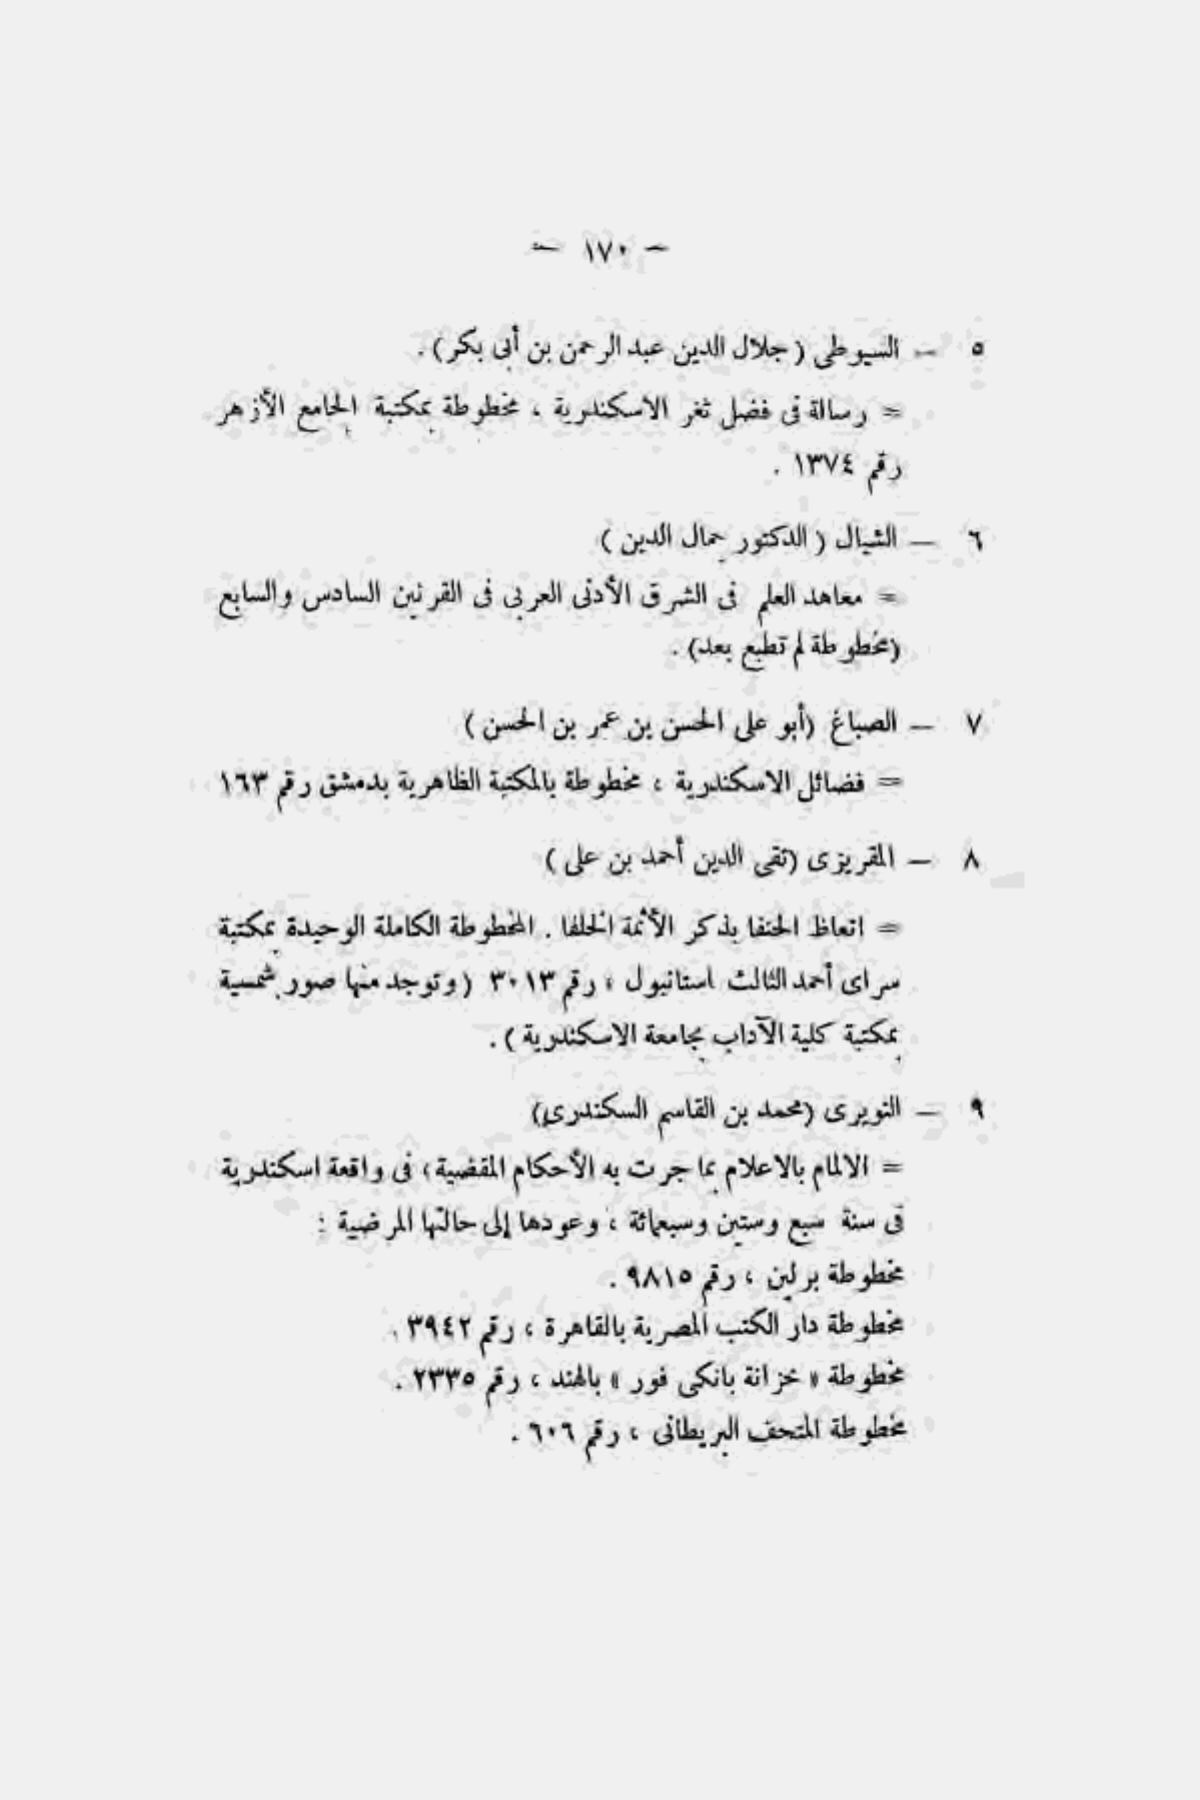 — ١٧٠ —
٥ — السيوطى ( جلال الدين عبد الرحمن بن أبى بكر ) .
= رسالة فى فضل ثغر الاسكندرية ، مخطوطة بمكتبة الجامع الأزهر
رقم ١٣٧٤ .
٦ — الشيال ( الدكتور جمال الدين )
= معاهد العلم فى الشرق الأدنى العربى فى القرنين السادس والسابع
(مخطوطة لم تطبع بعد) .
٧ — الصباغ (أبو على الحسن بن عمر بن الحسن )
= فضائل الاسكندرية ، مخطوطة بالمكتبة الظاهرية بدمشق رقم ١٦٣
٨ — المقريزى (تقى الدين أحمد بن على )
= اتعاظ الحنفا بذكر الأئمة الخلفا . المخطوطة الكاملة الوحيدة بمكتبة
سراى أحمد الثالث استانبول ، رقم ٣٠١٣ ( وتوجد منها صور شمسية
بمكتبة كلية الآداب بجامعة الاسكندرية ) .
٩ — النويرى (محمد بن القاسم السكندرى)
= الالمام بالاعلام بما جرت به الأحكام المقضية ، فى واقعة اسكندرية
فى سنة سبع وستين وسبعمائة ، وعودها إلى حالتها المرضية :
مخطوطة برلين ، رقم ٩٨١٥ .
مخطوطة دار الكتب المصرية بالقاهرة ، رقم ٣٩٤٢ .
مخطوطة « خزانة بانكى فور » بالهند ، رقم ٢٣٣٥ .
مخطوطة المتحف البريطانى ، رقم ٦٠٦ .